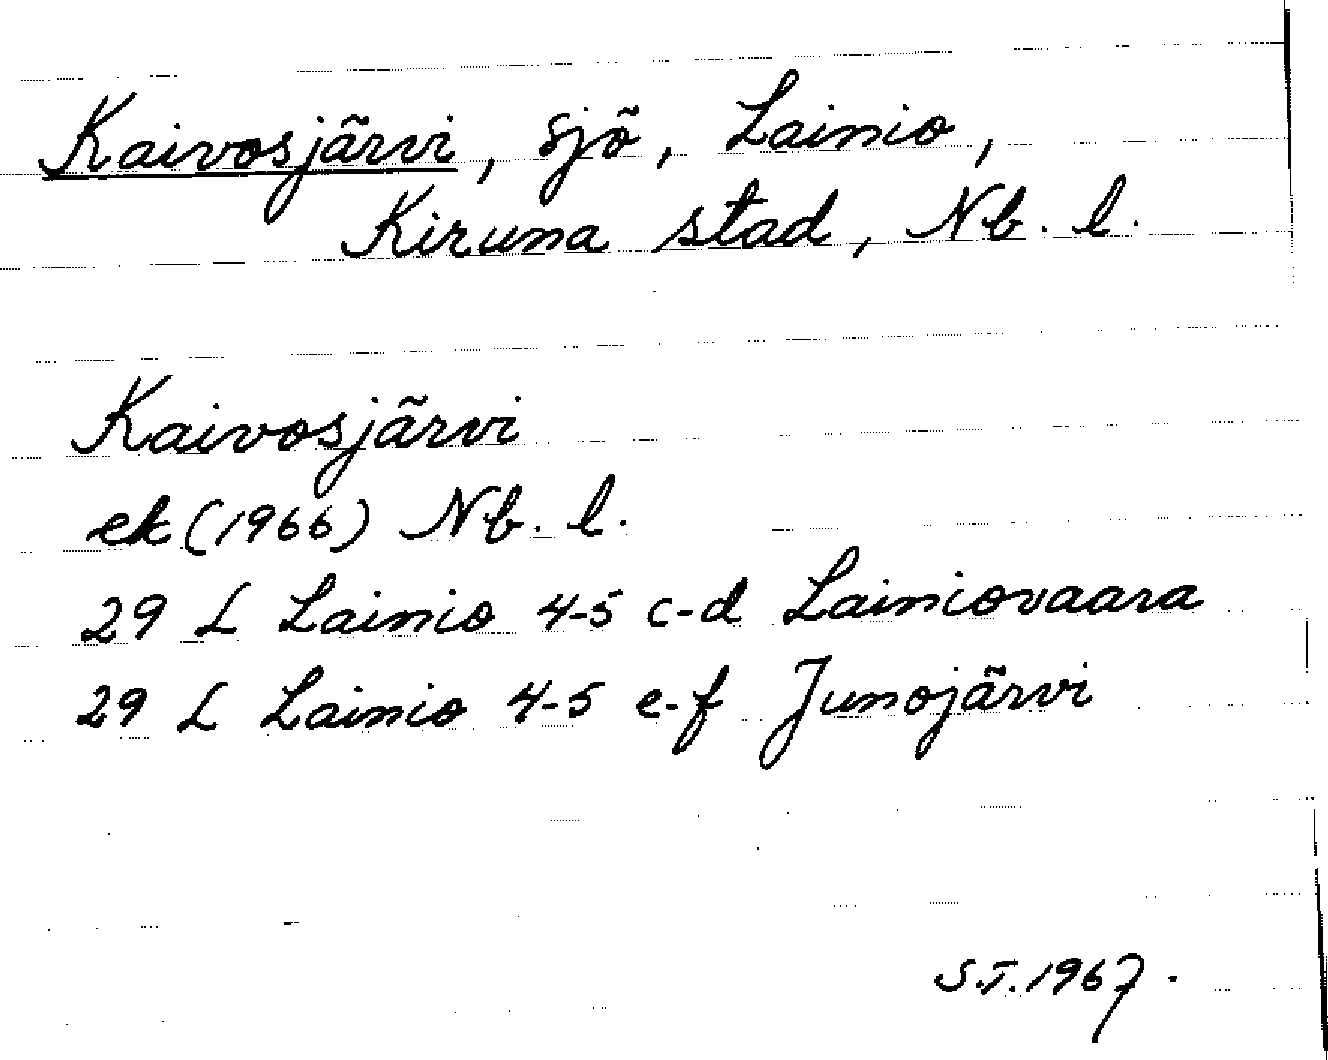 Kaivosjärvi, sjö, Lainio,
Kiruna stad, Nb. l.
Kaivosjärvi
ek (1966) Nb. l.
29 L Lainio 4-5 c-d Lainiovaara
29 L Lainio 4-5 e-f Junojärvi
S.T. 1967.